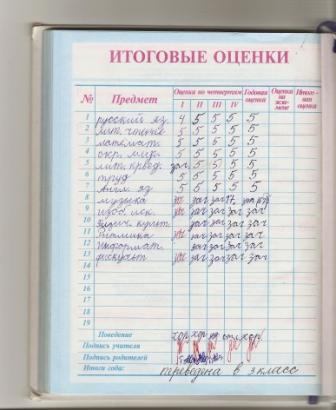 ИТОГОВЫЕ ОЦЕНКИ
№ Предмет Оценки по четвертям I II III IV Годовая оценка Оценка на экзамене Итоговая оценка
1 русский яз. 4 5 5 5 5
2 лит. чтение 5 5 5 5 5
3 математ. 5 5 5 5 5
4 окр. мир. 5 5 5 5 5
5 лит. краед. зач 5 5 5 5
6 труд 5 5 5 5 5
7 англ. яз 5 5 5 5 5
8 музыка зач зач
9 изоб. иск. зач зач зач зач
10 культ зач зач зач зач
11 Ритмика зач зач зач зач
12 Информат. зач зач зач зач
13 физкульт зач зач зач зач
14
15
16
17
18
19
Поведение хор хор хор
Подпись учителя
Подпись родителей
Итоги года: переведена в 3 класс